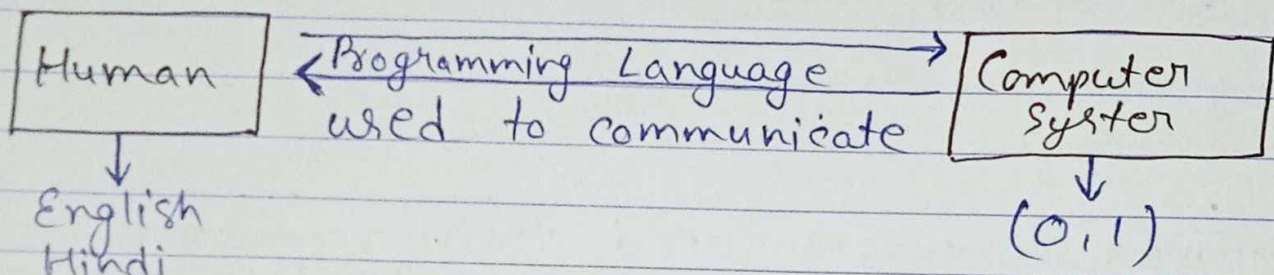 Human
Programming Language
used to communicate
Computer
Syster
English
Hindi
(0,1)